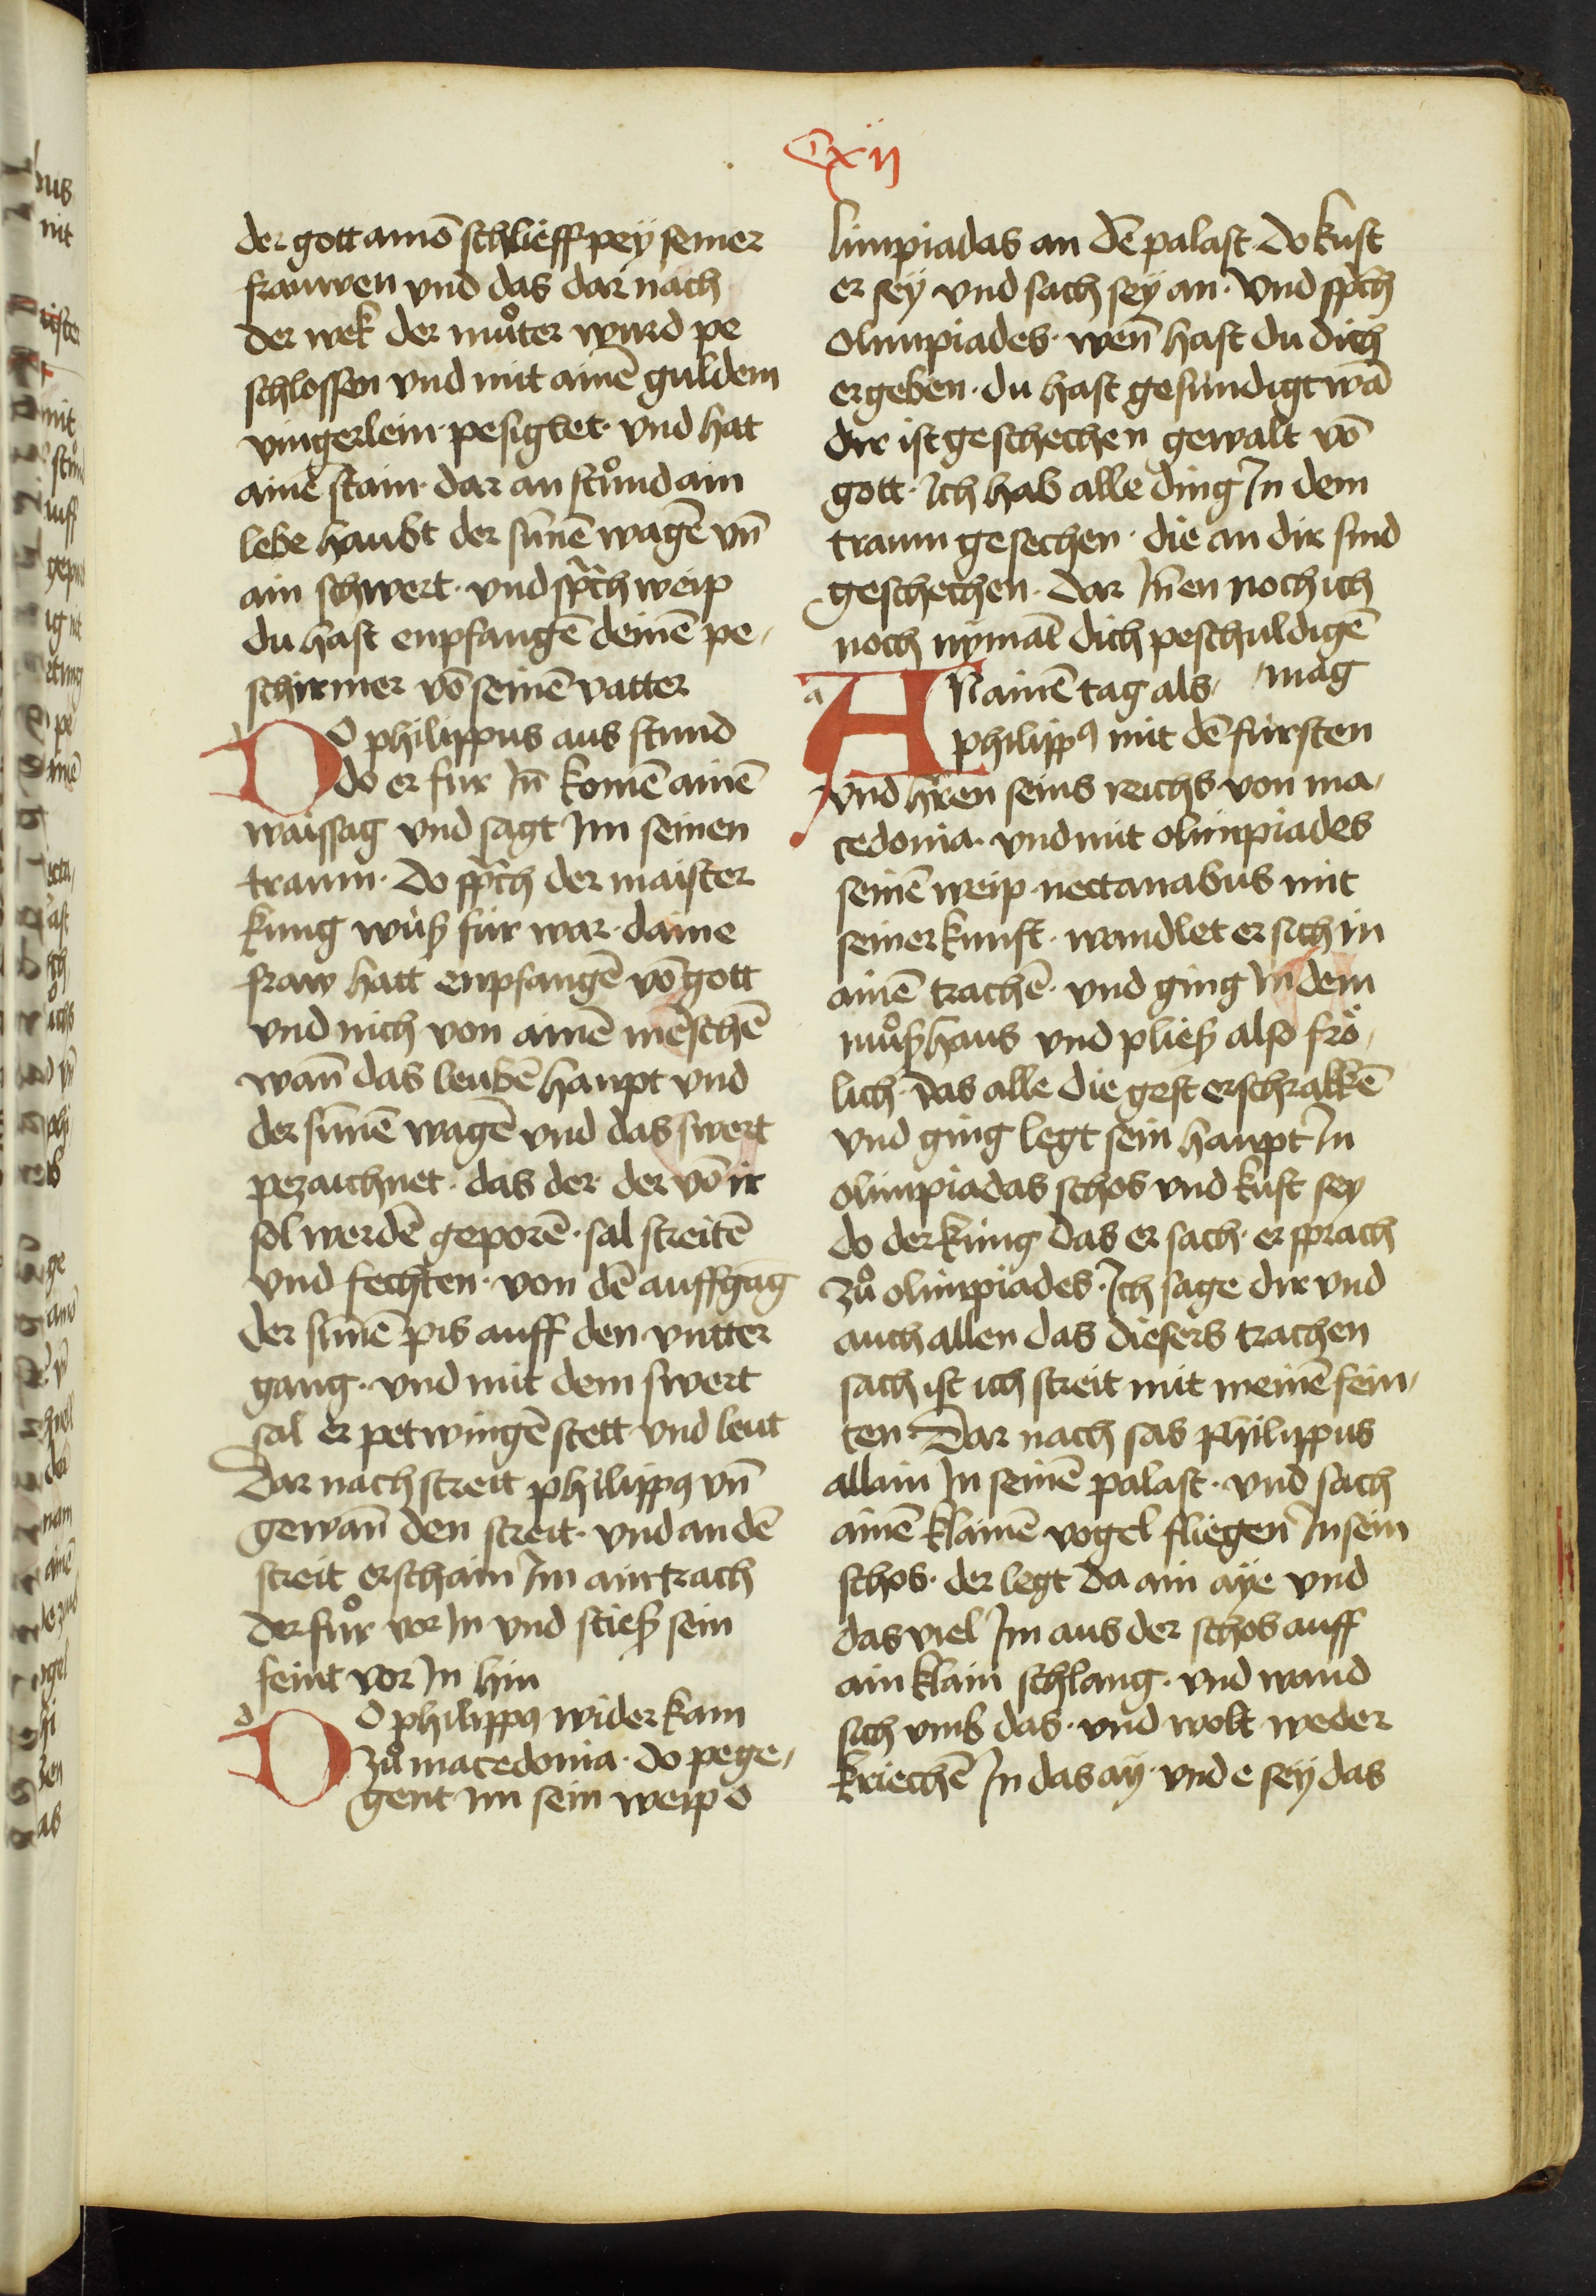 Cxij
der gott amō schlieff peÿ seiner
frauwen vnd das dar nach
der wek der můter wurd pe
schlossen vnd mit ainē guldem
vingerlein · pesiglet · vnd hat
ainē stain · dar an stůnd ain
lebe haubt der sūnē wagē vn̄
ain schwert · vnd sprach weip
du hast enpfangē deinē pe-
schirmer vō seinē vatter
DO philippus aus stund
do er fur In̄ komē ainē
waissag vnd sagt Im seinen
traum · Do sprach der maister
kung wüß für war · daine
fraw hatt enpfangē vō gott
vnd nich von ainē mēschē
wan̄ das leubē haupt vnd
der sūnē wagē vnd das swert
pezaichnet · das der · der vō ir
sol werdē geporē · sal streitē
vnd fechten · von dē auffgāg
der sūnē pis auff den vntter
gang · vnd mit dem swert
sal er petwingē stett vnd leut
Dar nach streit philippꝰ vn̄
gewan̄ den streit · vnd an dē
streit erschain Im ain trach
der fůr vor In vnd stieß sein
feint vor In hin
DO philippꝰ wider kam
zů macedonia · do pege-
gent im sein weip o
limpiadas an dē palast · do kust
er seÿ vnd sach seÿ an · Vnd sprach
olimpiades · wen̄ hast du dich
ergeben · du hast gesundigt wā
dir ist geschechen gewalt vō
gott · Ich hab alle ding In dem
traum gesechen · die an dir sind
geschechen · Dar In̄en noch ich
noch nÿmāt dich peschuldigē
mag
AN ainē tag als
philippꝰ mit dē fürsten
vnd hr̄en seins reichs von ma-
cedonia · vnd mit olimpiades
seinē weip · nectanabus mit
seiner kunst · wandlet er sich in
ainē trachē · vnd ging In dem
můßhaus vnd pließ also frö-
lich · das alle die gest erschrakkē
vnd ging legt sein haupt In
olimpiadas schos vnd kust sey
do der kung das er sach · er sprach
zů olimpiades · Ich sage dir vnd
auch allen das diesers trachen
sach ist ich streit mit meinē fein-
ten · Dar nach sas philippus
allain In seinē palast · vnd sach
ainē klainē vogel fliegen In sein
schos · der legt da ain aÿe vnd
das viel Im aus der schos auff
ain klain schlang · vnd wand
sich vmb das · vnd wolt weder
kriechē In das aÿ · vnd e seÿ das